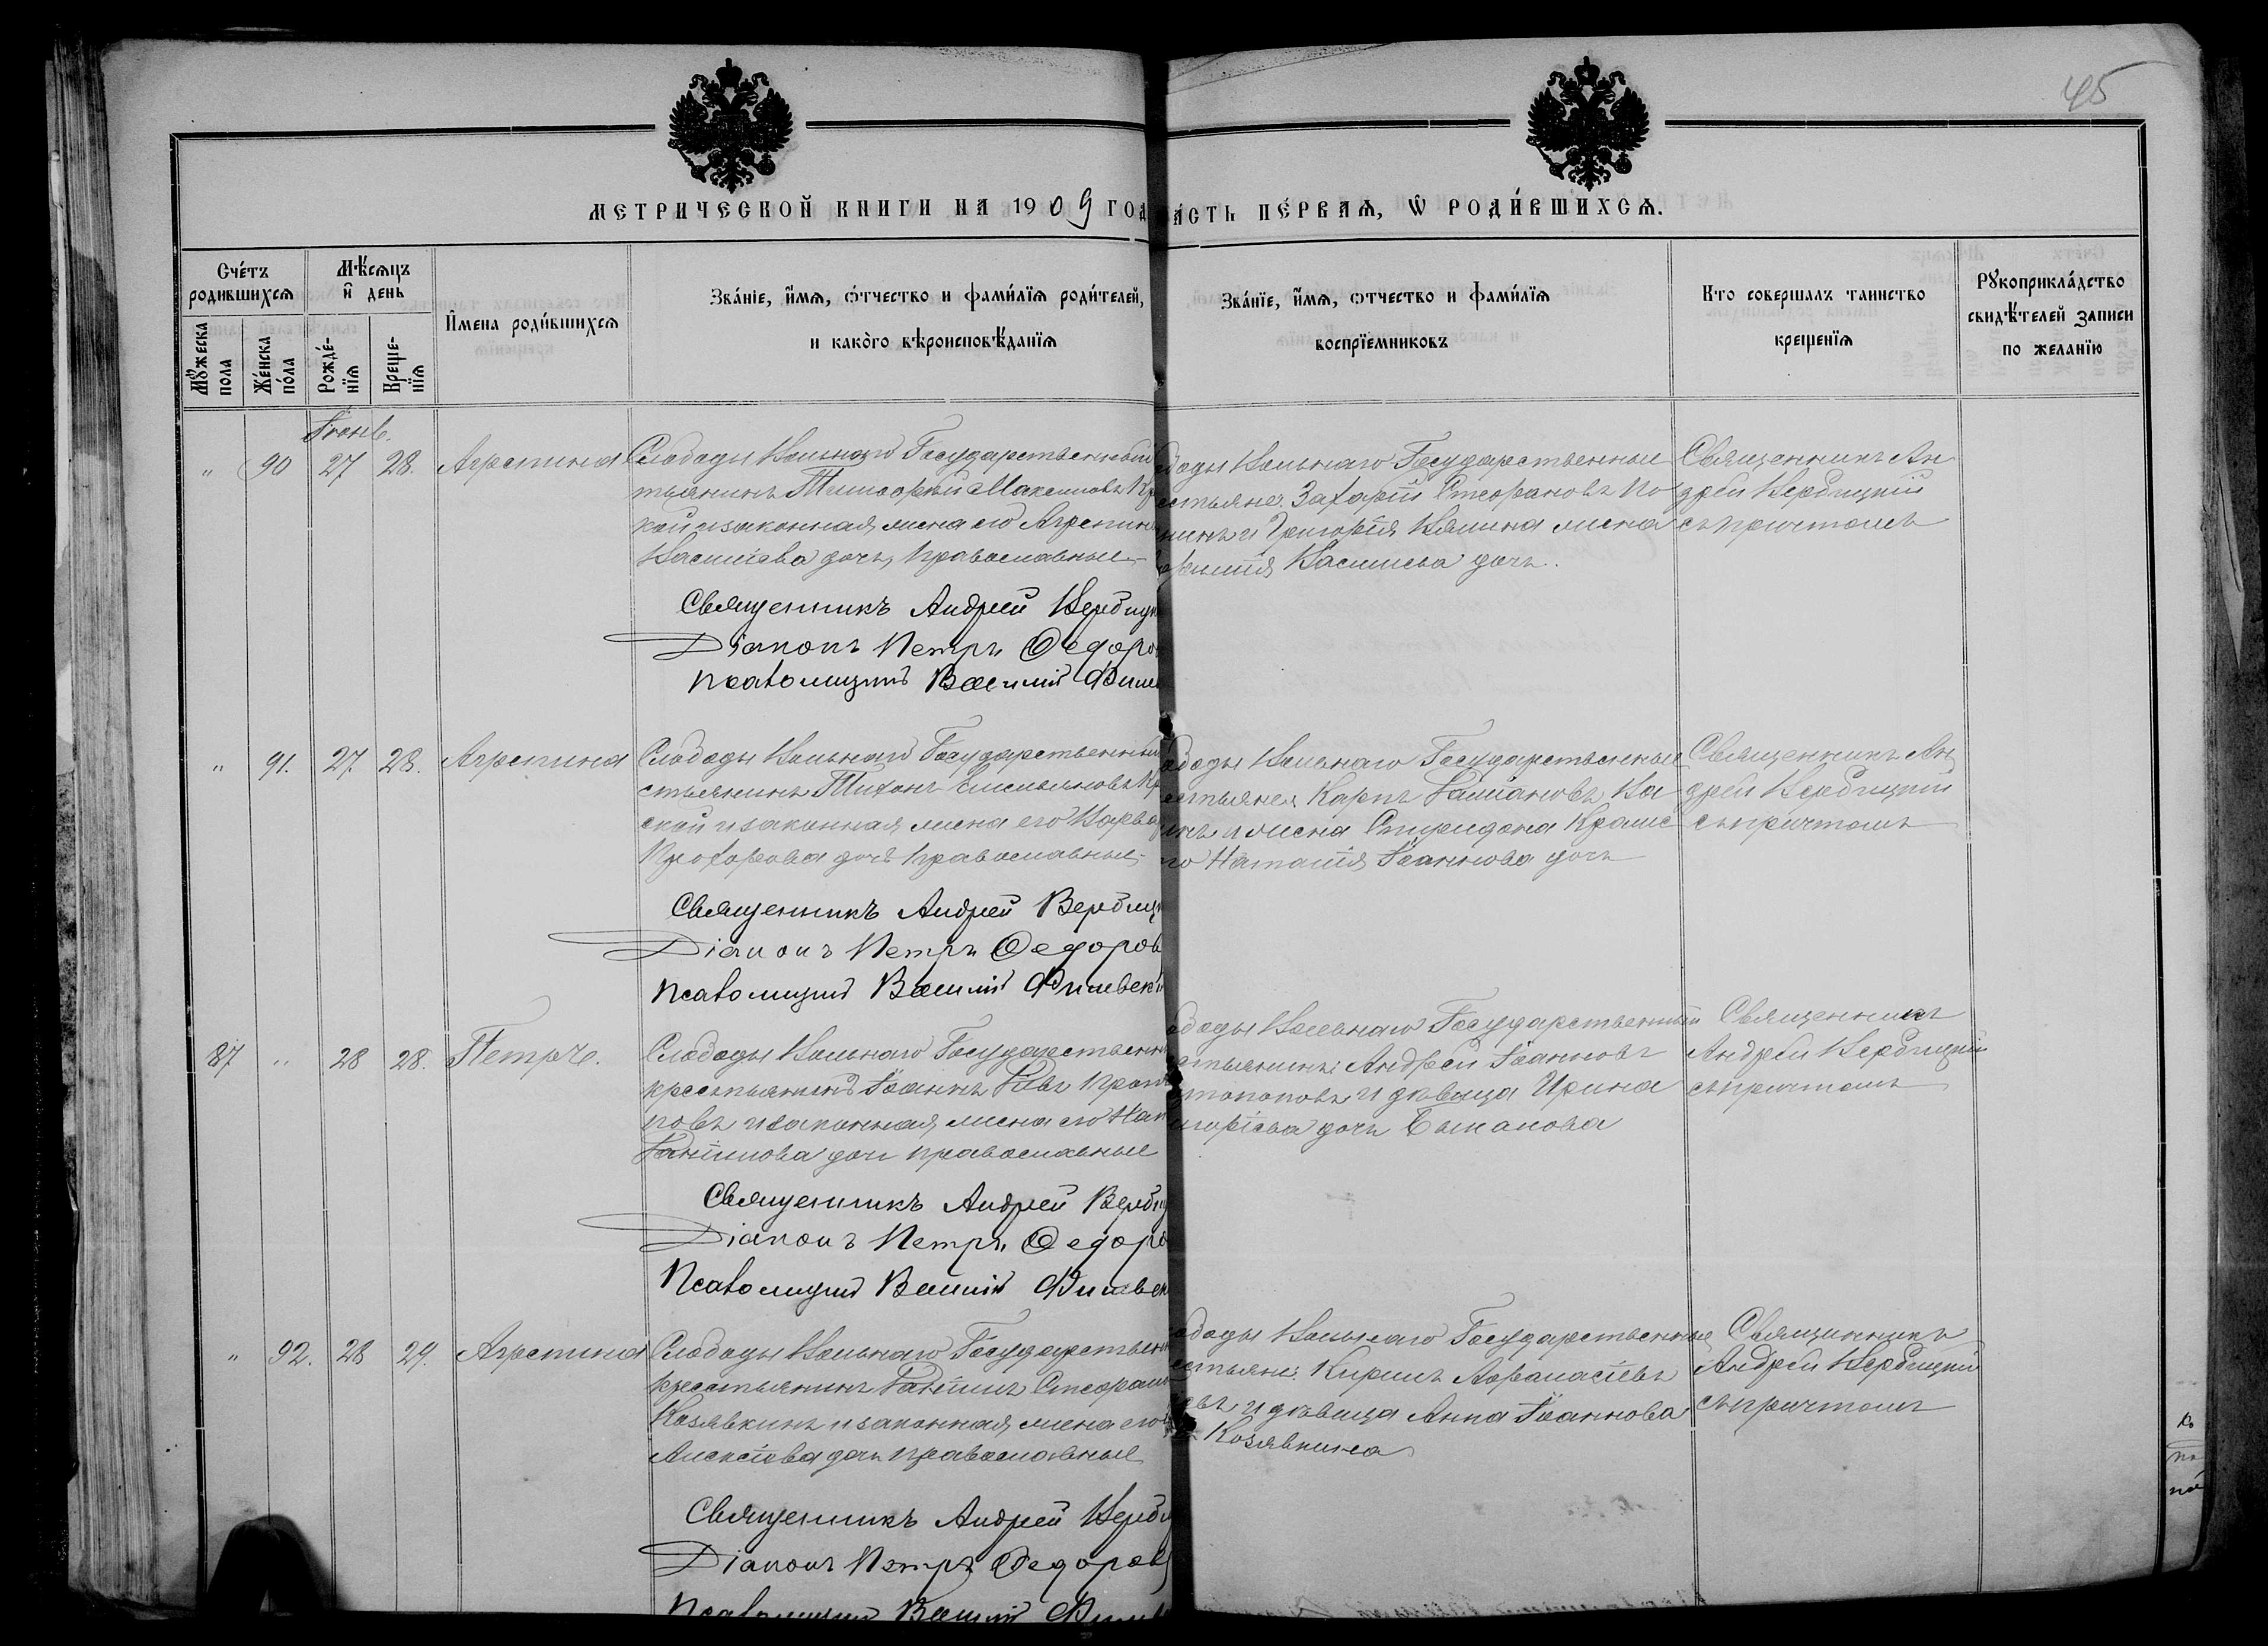 45
МЕТРИЧЕСКОЙ КНИГИ НА 1909 ГОД
ЧАСТЬ ПЕРВАЯ, Ѡ РОДИВШИХСЯ.
Счетъ родившихся
Мужеска пола
Женска пола
Мѣсяцъ и день
Рожденія
Крещенія
Имена родившихся
Званіе, имя, отчество и фамилія родителей,
и какого вѣроисповѣданія
Званіе, имя, отчество и фамилія
воспріемниковъ
Кто совершалъ таинство
крещенія
Рукоприкладство
свидѣтелей записи
по желанію
Іюнь.
" 90 27 28. Агрепина
Слободы Вольнаго Государственный
тьянинъ Тимофей Максимовъ
кой и законная жена его Агрепин
Василіева дочь, православные
Священникъ Андрей Вербицк
Діаконъ Петръ Ѳедоро
Псаломщикъ Василій
боды Вольнаго Государственные
естьяне: Захарій Стефановъ
и Григорія жена
Василіева дочь.
Священникъ Ан
дрей Вербицкій
съ причтомъ
" 91. 27. 28. Агрепина
Слободы Вольнаго Государственный
стьянинъ Тихонъ
ской и законная жена его Варва
Прохорова дочь православные
Священникъ Андрей Вербиц
Діаконъ Петръ Ѳедоров
Псаломщикъ Василій
ободы Вольнаго Государственные
естьяне: Карпъ
и жена Спиридона
Наталія Іоаннова дочь
Священникъ Ан
дрей Вербицкій
съ причтомъ
87 " 28 28. Петръ.
Слободы Вольнаго Государственн
крестьянинъ Іоаннъ
повъ и законная жена его Нат
Даніилова дочь православные
Священникъ Андрей Верби
Діаконъ Петръ Ѳедоро
Псаломщикъ Василій
ободы Вольнаго Государственный
стьянинъ: Андрей Іоанновъ
топоповъ и дѣвица Ирина
игоріева дочь
Священникъ
Андрей Вербицкій
съ причтомъ
" 92. 28 29. Агрепина
Слободы Вольнаго Государственн
крестьянинъ Даніилъ Стефано
Козявкинъ и законная жена его
Алексіева дочь православные
Священникъ Андрей Верби
Діаконъ Петръ Ѳедоровъ
Псаломщикъ Василій
ободы Вольнаго Государственные
естьяне: Кирилъ Аѳанасіевъ
и дѣвица Анна Іоаннова
Козявкина
Священникъ
Андрей Вербицкій
съ причтомъ